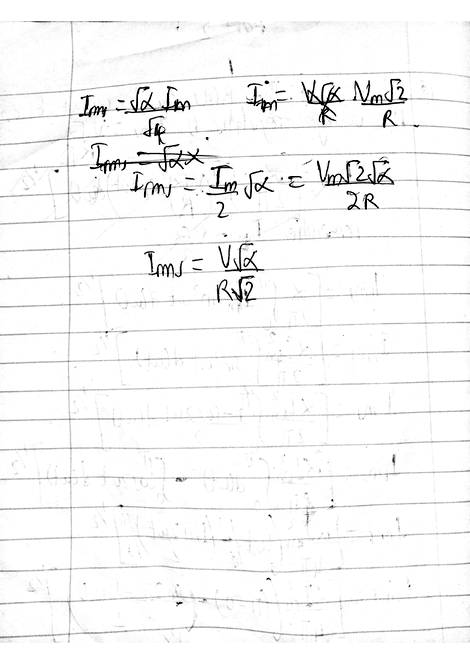 Irms = √α Im / √4    Im = Vm√2 / R
Irms = √α x
Irms = Im/2 √α = Vm√2√α / 2R
Irms = V√α / R√2